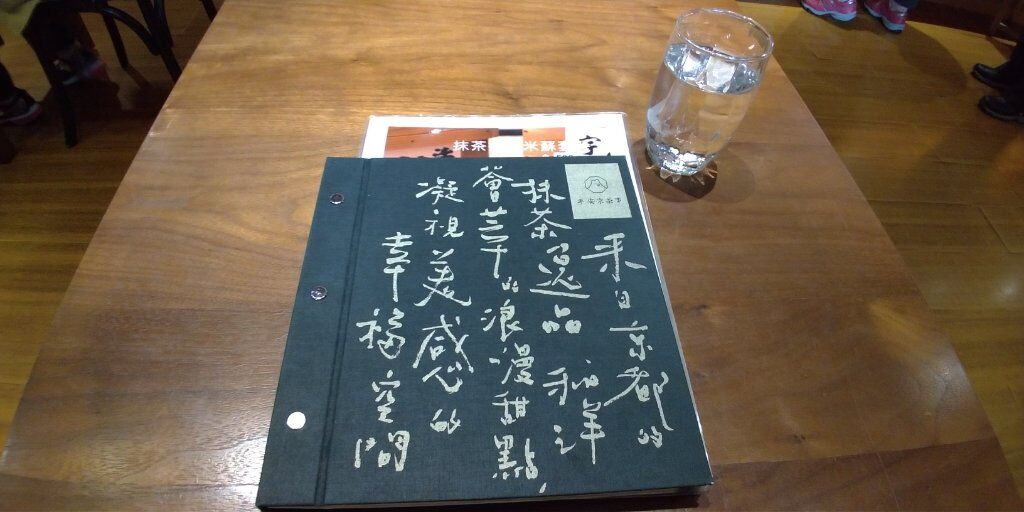 平安京茶事
来自京都的
抹茶逸品 和洋
薈萃的浪漫甜點,
凝視美感的
幸福空間
抹茶 米蘇
宇